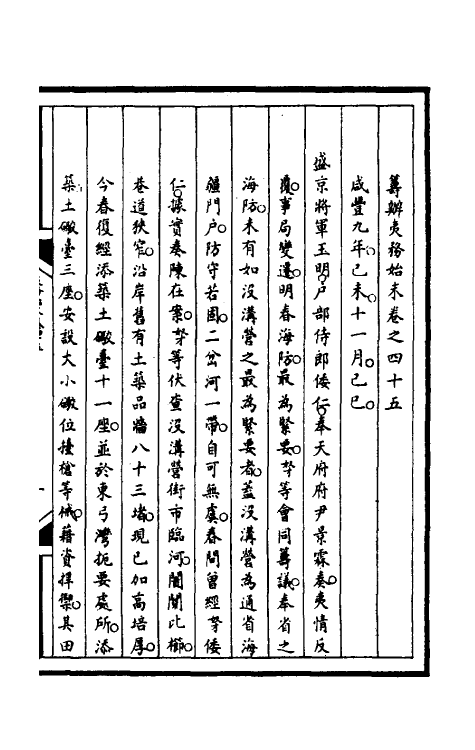 籌辦夷務始末卷之四十五
咸豐九年己未十一月己巳
盛京將軍玉明戶部侍郎倭仁奉天府府尹景霖奏夷情反
覆事局變遷明春海防最為緊要等會同籌議奉省之
海防未有如沒溝營之最為緊要者蓋沒溝營為通省海
疆門戶防守若固二岔河一帶自可無虞春間曾經等倭
仁據實奏陳在案等伏查沒溝營街市臨河闤闠比櫛
巷道狹窄沿岸舊有土築品牆八十三堵現已加高培厚
今春復經添築土礮臺十一座並於東弓灣扼要處所添
築土礮臺三座安設大小礮位擡槍等械藉資捍禦其田